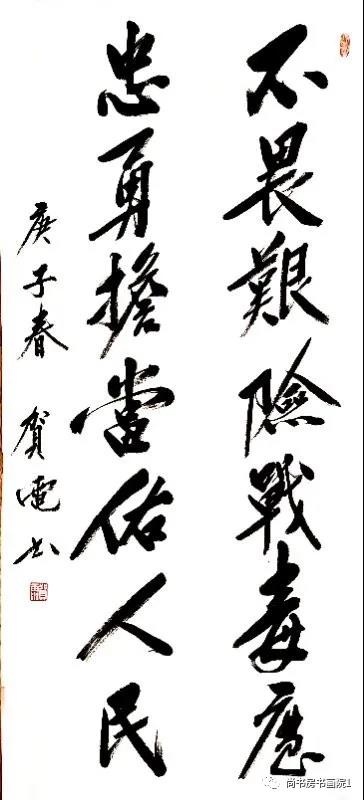 不畏艱險戰毒魔
忠勇擔當佑人民
庚子春 賀電书
尚书房书画院1